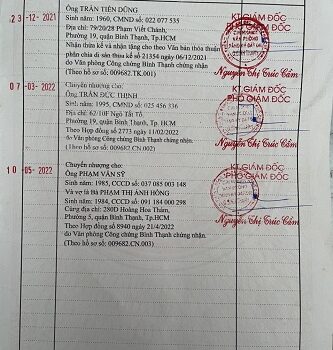 23-12-2021
Ông TRẦN TIẾN DŨNG
Sinh năm: 1960, CMND số: 022 077 535
Địa chỉ: 79/20/28 Phạm Viết Chánh,
Phường 19, quận Bình Thạnh, Tp.HCM
Nhận thừa kế và nhận tặng cho theo Văn bản thỏa thuận
phân chia di sản thừa kế số 21354 ngày 06/12/2021
do Văn phòng Công chứng Bình Thạnh chứng nhận
(Theo hồ sơ số: 009682.TK.001)
KT.GIÁM ĐỐC
PHÓ GIÁM ĐỐC
Nguyễn Thị Trúc Cẩm
07-03-2022
Chuyển nhượng cho:
Ông TRẦN ĐỨC THỊNH
Sinh năm: 1995, CMND số: 025 456 336
Địa chỉ: 62/10F Ngô Tất Tố,
Phường 19, quận Bình Thạnh, Tp.HCM
Theo Hợp đồng số 2773 ngày 11/02/2022
do Văn phòng Công Chứng Bình Thạnh chứng nhận.
(Theo hồ sơ số: 009682.CN.002)
KT.GIÁM ĐỐC
PHÓ GIÁM ĐỐC
Nguyễn Thị Trúc Cẩm
10-05-2022
Chuyển nhượng cho:
Ông PHẠM VĂN SỸ
Sinh năm: 1985, CCCD số: 037 085 003 148
Và vợ là Bà PHẠM THỊ ÁNH HỒNG
Sinh năm: 1984, CCCD số: 091 184 000 298
Cùng địa chỉ: 280D Hoàng Hoa Thám,
Phường 5, quận Bình Thạnh, Tp.HCM
Theo Hợp đồng số 8940 ngày 21/4/2022
do Văn phòng Công Chứng Bình Thạnh chứng nhận.
(Theo hồ sơ số: 009682.CN.003)
KT.GIÁM ĐỐC
PHÓ GIÁM ĐỐC
Nguyễn Thị Trúc Cẩm